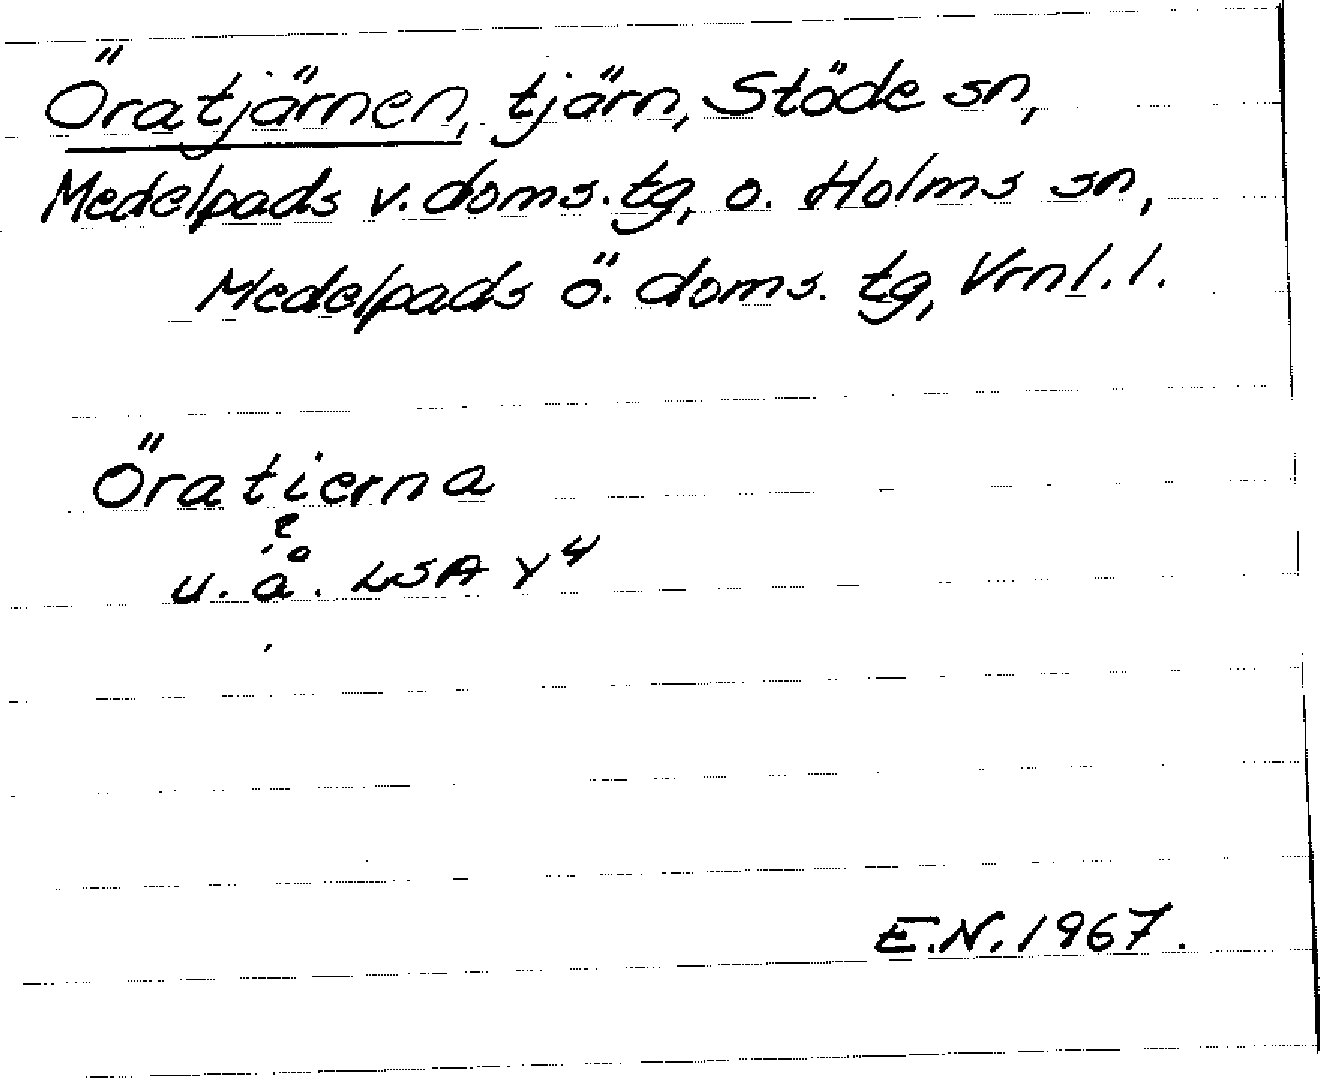 Öratjärnen, tjärn, Stöde sn,
Medelpads v. doms. tg, o. Holms sn,
Medelpads ö. doms. tg, Vrnl. l.
Öratierna
u. å. LSA Y4
E.N. 1967.